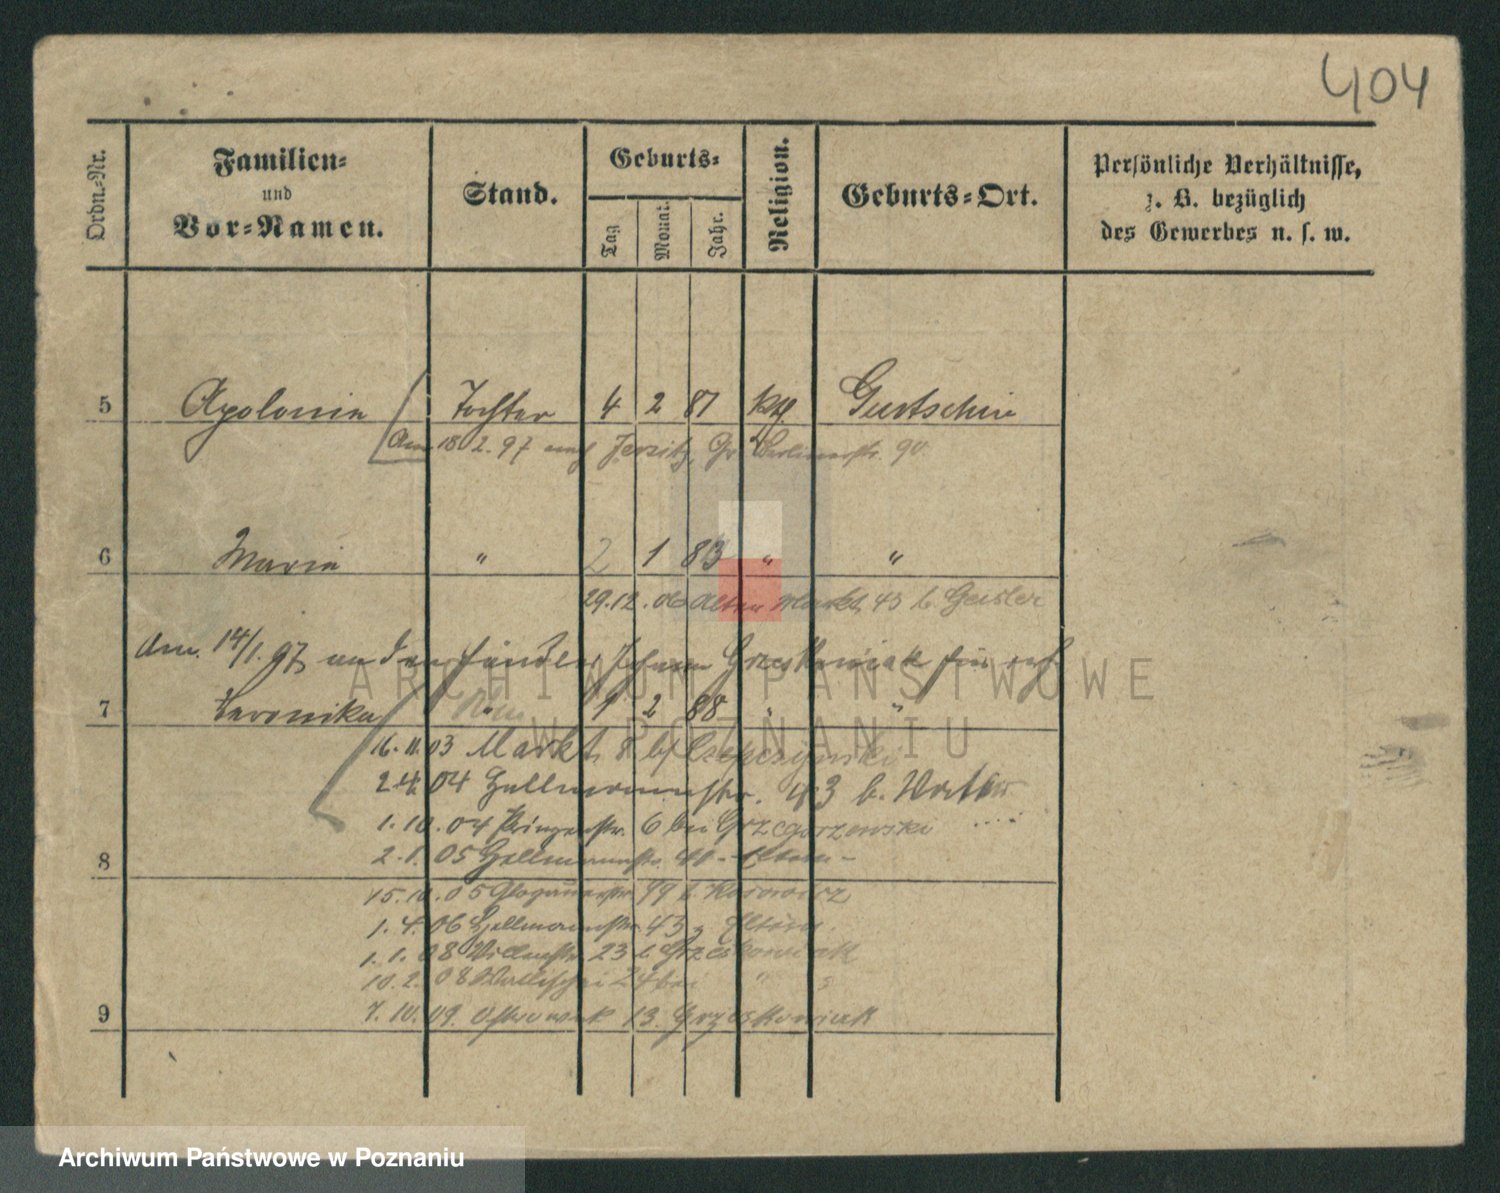 404
Ordn.-Nr.
Familien-
und
Vor-Namen.
Stand.
Geburts-
Tag
Monat.
Jahr.
Religion.
Geburts-Ort.
Persönliche Verhältnisse,
z. B. bezüglich
des Gewerbes u. s. w.
5 Apolonia Tochter 4 2 87 kth. Gurtschin
Am 18 2. 97 nach Jersitz, Gr Berlinerstr. 90
6 Maria " 2 1 83 " "
29.12. 06 Alten Markt, 43 b. Geisler
Am. 14/1. 97 an den Johann Grzeskowiak
7 Veronika " 9 2 88 " "
16. 11. 03 Markt 8 b/
2. 4. 04 Hellmannstr. 43 b.
1. 10. 04 6 bei Grzegorzewski
8
2. 1. 05 Hellmannstr. Eltern -
15. 10. 05 Glogauerstr. 99 b.
1. 4. 06 Hellmannstr. 43, Eltern.
1. 1. 08 23 b Grzeskowiak
10. 2. 08 Wallischei 24 bei " "
9
7. 10. 09. Ostrowek 13. Grzeskowiak
ARCHIWUM PAŃSTWOWE
W POZNANIU
Archiwum Państwowe w Poznaniu